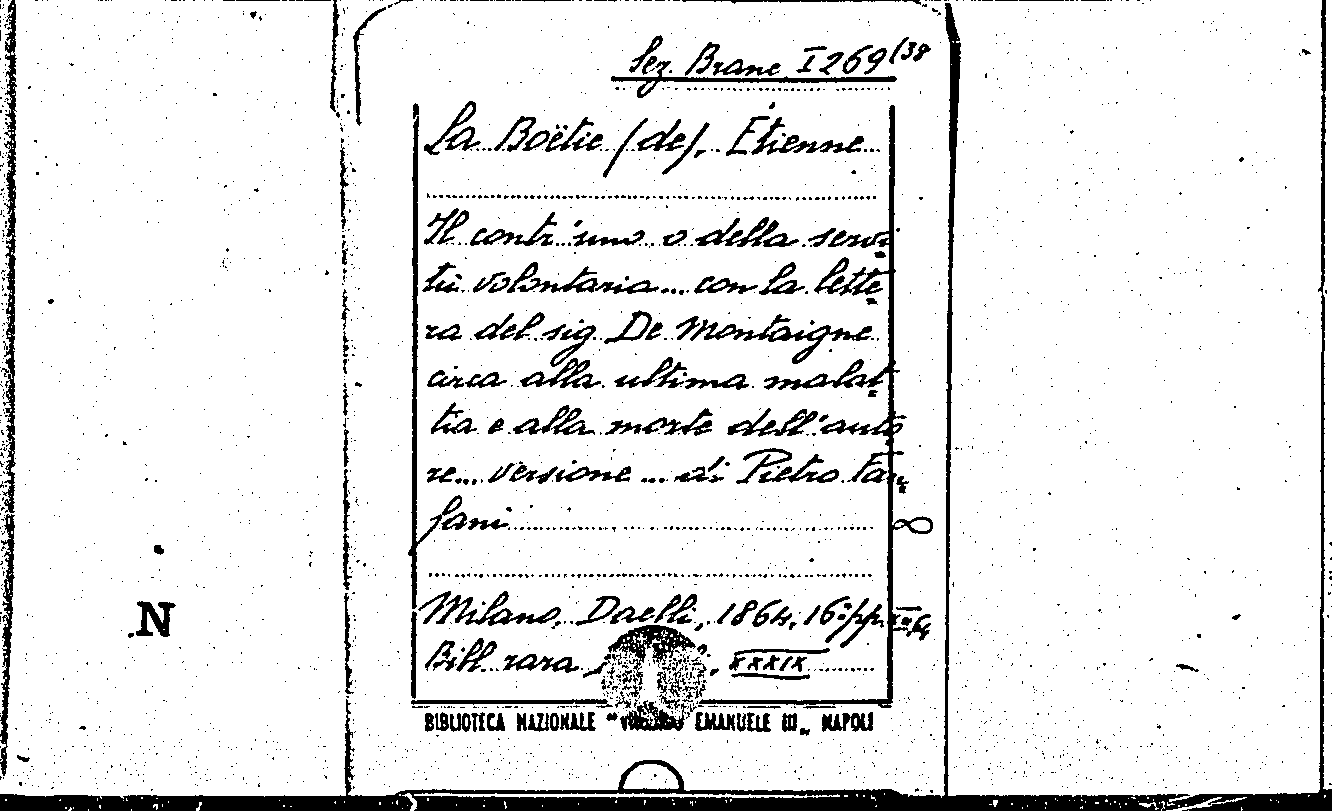 Sez. Branc I 269(38
La Boëtie (de), Étienne
Il contr'uno o della servi=
tù volontaria... con la lette=
ra del sig. De Montaigne
circa alla ultima malat=
tia e alla morte dell'auto=
re... versione... di Pietro Fan=
fani
8
Milano, Daelli, 1864, 16° pp.
Bibl. rara XXXIX
N
BIBLIOTECA NAZIONALE " EMANUELE III„ NAPOLI